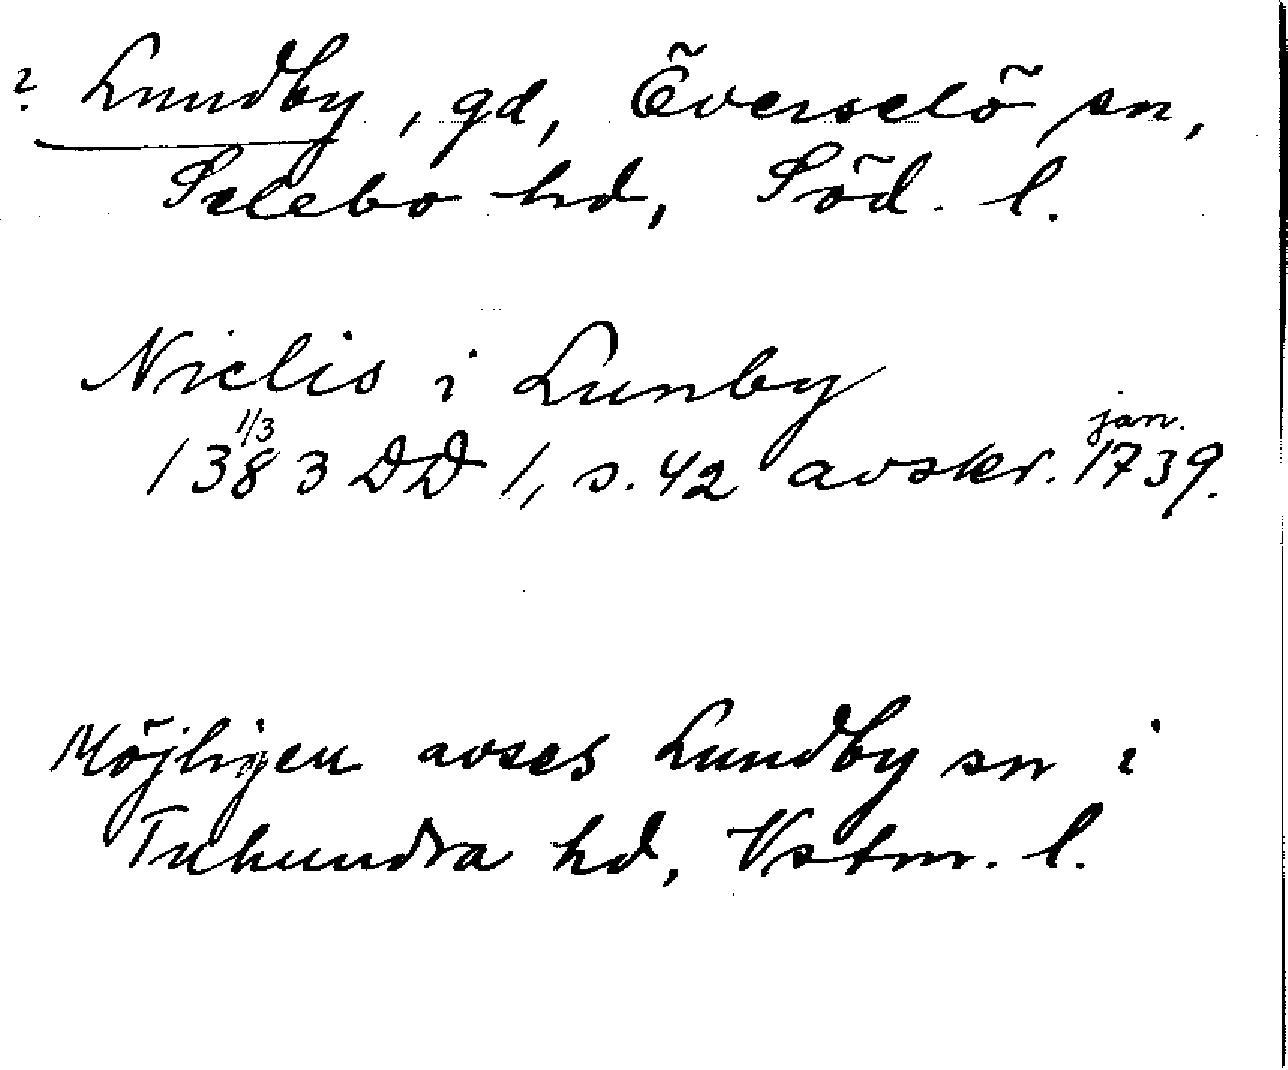 ? Lundby, gd, Överselö sn,
Selebo hd, Söd. l.
Niclis i Lunby
1/3 jan.
1383 DD 1, s. 42 avskr. 1739.
Möjligen avses Lundby sn i
Tuhundra hd, Vstm. l.